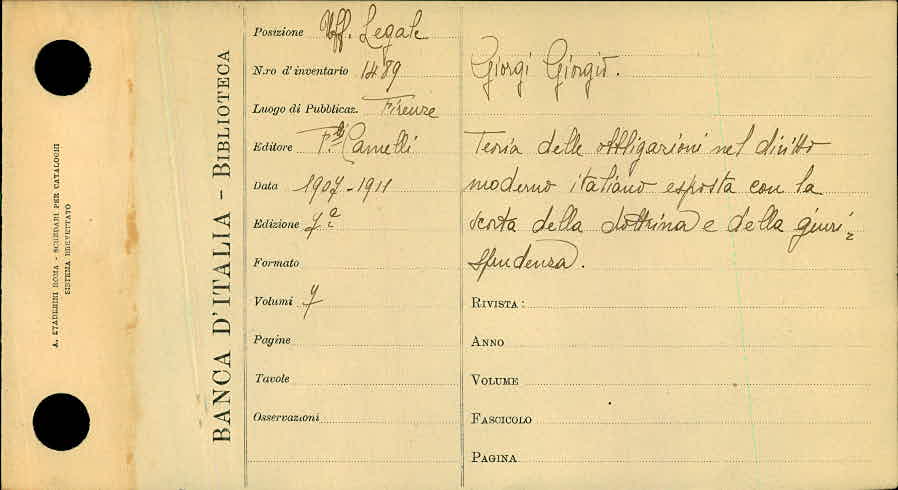 A. STADERINI ROMA - SCHEDARI PER CATALOGHI
SISTEMA BREVETTATO
BANCA D'ITALIA - BIBLIOTECA
Posizione Uff. Legale
N.ro d'inventario 1489
Luogo di Pubblicaz. Firenze
Editore F.lli Camelli
Data 1907-1911
Edizione 7a
Formato
Volumi 7
Pagine
Tavole
Osservazioni
Giorgi Giorgio.
Teoria delle obbligazioni nel diritto
moderno italiano esposta con la
scorta della dottrina e della giuri=
sprudenza.
RIVISTA:
ANNO
VOLUME
FASCICOLO
PAGINA